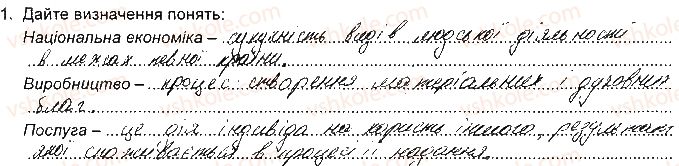 1. Дайте визначення понять:
Національна економіка – сукупність видів людської діяльності
в межах певної країни.
Виробництво – процес створення матеріальних і духовних
благ.
Послуга – це дія індивіда на користь іншого, результат
якої споживається в процесі її надання.